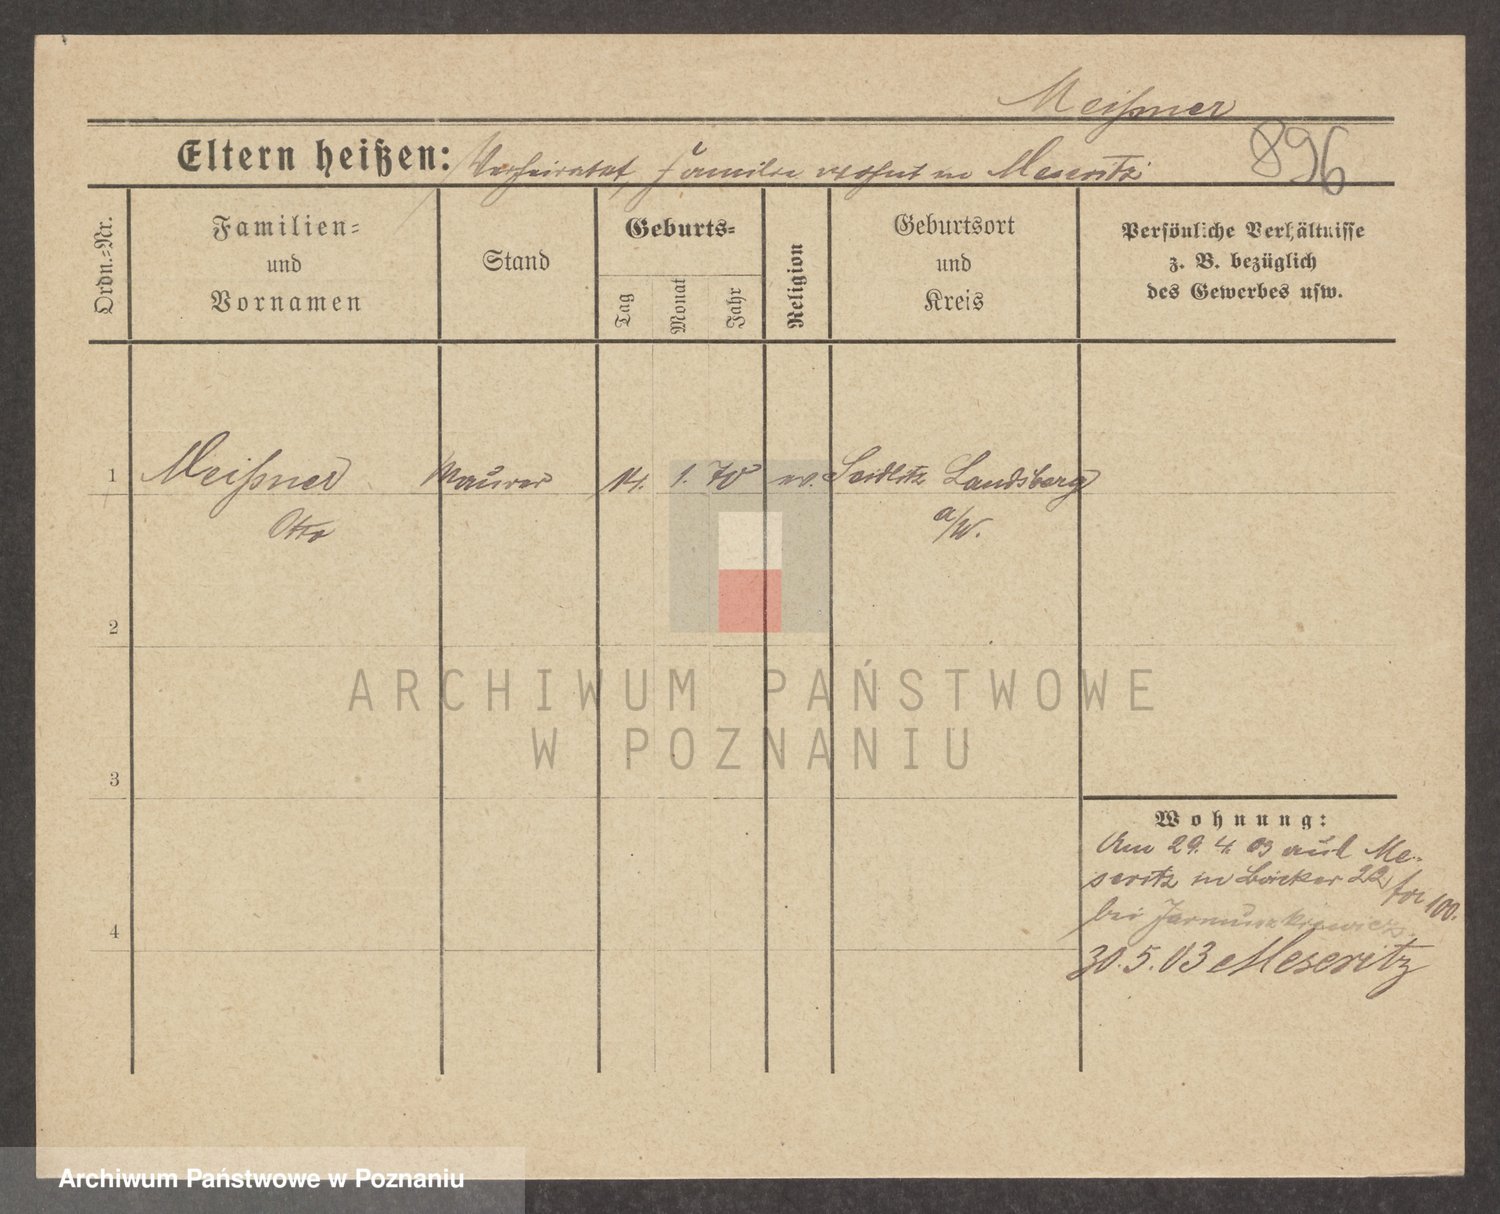 Meißner
896
Eltern heißen: Verheiratet, Familie wohnt in Meseritz
Ordn.-Nr.
Familien-
und
Vornamen
Stand
Geburts-
Tag
Monat
Jahr
Religion
Geburtsort
und
Kreis
Persönliche Verhältnisse
z. B. bezüglich
des Gewerbes usw.
1 Meißner Maurer 14. 1. 70 ev. Seidlitz Landsberg
Otto a/W.
2
ARCHIWUM PAŃSTWOWE
W POZNANIU
3
Wohnung:
Am 29. 4. 03 aus Me-
seritz in Bäcker 22
bei Jarmuszkiewicz. 100.
4
30.5.03 Meseritz
Archiwum Państwowe w Poznaniu